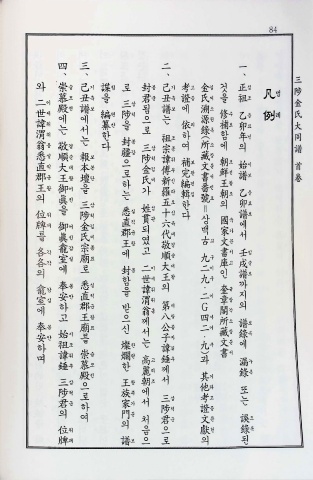 84
三陟金氏大同譜 首卷
凡例
一、正祖 乙卯年의 始譜 乙卯譜에서 壬戌譜까지의 譜錄에 漏錄 또는 誤錄된
것을 修補함에 朝鮮王朝의 國家文書庫인 奎章閣所藏文書
金氏溯源錄(所藏文書番號=상백고 九二九·二G四二·九)과 其他考證文獻의
考證에 依하여 補完編輯한다
二、己丑譜는 祖宗諱傅新羅五十六代敬順大王의 第八公子諱錘께서 三陟君으로
封君됨으로 三陟金氏가 姓貫되였고 二世諱渭翁께서는 高麗朝에서 처음으
로 三陟을 封疆으로하는 悉直郡王에 封함을 받으신 燦爛한 王族家門의 譜
諜을 編纂한다
三、己丑譜에서는 報本壇을 三陟金氏宗廟로 悉直郡王廟를 崇慕殿으로하여
四、崇慕殿에는 敬順大王御眞을 御眞龕室에 奉安하고 始祖諱錘 三陟君의 位牌
와 二世諱渭翁悉直郡王의 位牌를 各各의 龕室에 奉安하며